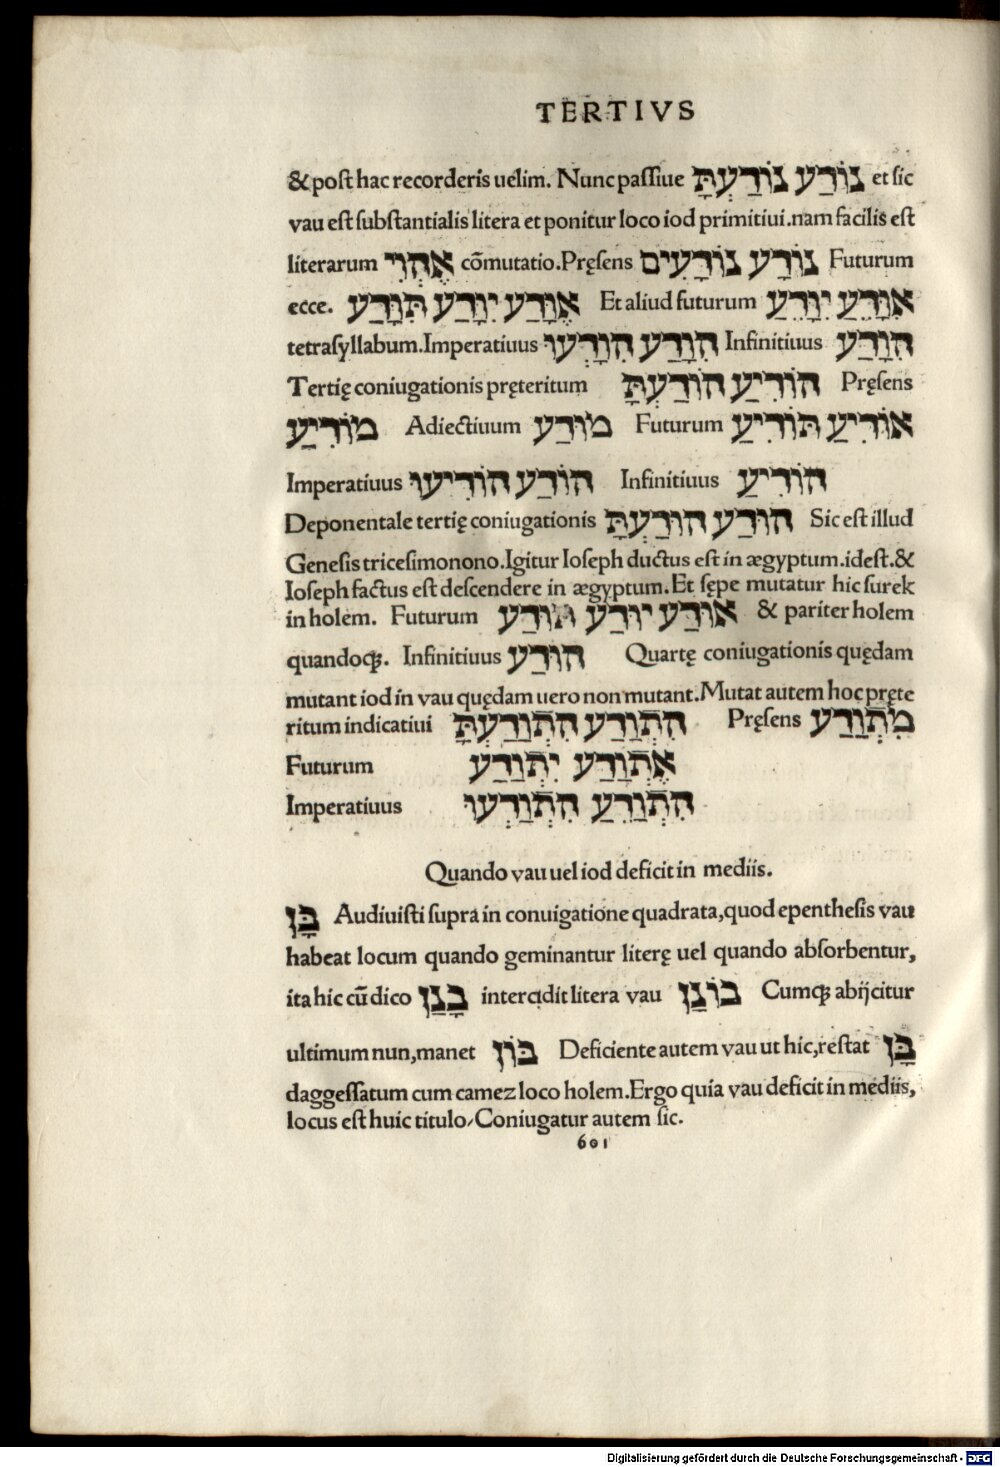 TERTIVS
& post hac recorderis uelim. Nunc passiue נוֹדַע נוֹדַעְתָּ et sic
vau est substantialis litera et ponitur loco iod primitiui.nam facilis est
literarum אֶהֱוִי cōmutatio.Pręsens נוֹדָע נוֹדָעִים Futurum
ecce. אֶוָּדַע יִוָּדַע תִּוָּדַע Et aliud futurum אִוָּדֵעַ יִוָּדֵעַ
tetrasyllabum.Imperatiuus הִוָּדַע הִוָּדְעוּ Infinitiuus הִוָּדַע
Tertię coniugationis pręteritum הוֹדִיעַ הוֹדַעְתָּ Pręsens
מוֹדִיעַ Adiectiuum מוֹדַע Futurum אוֹדִיעַ תּוֹדִיעַ
Imperatiuus הוֹדַע הוֹדִיעוּ Infinitiuus הוֹדִיעַ
Deponentale tertię coniugationis הוּדַע הוּדַעְתָּ Sic est illud
Genesis tricesimonono.Igitur Ioseph ductus est in ægyptum.idest.&
Ioseph factus est descendere in ægyptum.Et sępe mutatur hic surek
in holem. Futurum אוּדַע יוּדַע תּוּדַע & pariter holem
quandoqꝫ. Infinitiuus הוּדַע Quartę coniugationis quędam
mutant iod in vau quędam uero non mutant.Mutat autem hoc pręte
ritum indicatiui הִתְוַדַע הִתְוַדַעְתָּ Pręsens מִתְוַדַע
Futurum אֶתְוַדַּע יִתְוַדַע
Imperatiuus הִתְוַדֵעַ הִתְוַדְעוּ
Quando vau uel iod deficit in mediis.
בָּן Audiuisti supra in conuigatione quadrata,quod epenthesis vau
habeat locum quando geminantur literę uel quando absorbentur,
ita hic cū dico בָנַן intercidit litera vau בוֹנַן Cumqꝫ abijcitur
ultimum nun,manet בּוֹן Deficiente autem vau ut hic,restat בָּן
daggessatum cum camez loco holem.Ergo quia vau deficit in mediis,
locus est huic titulo/Coniugatur autem sic.
601
Digitalisierung gefördert durch die Deutsche Forschungsgemeinschaft - DFG